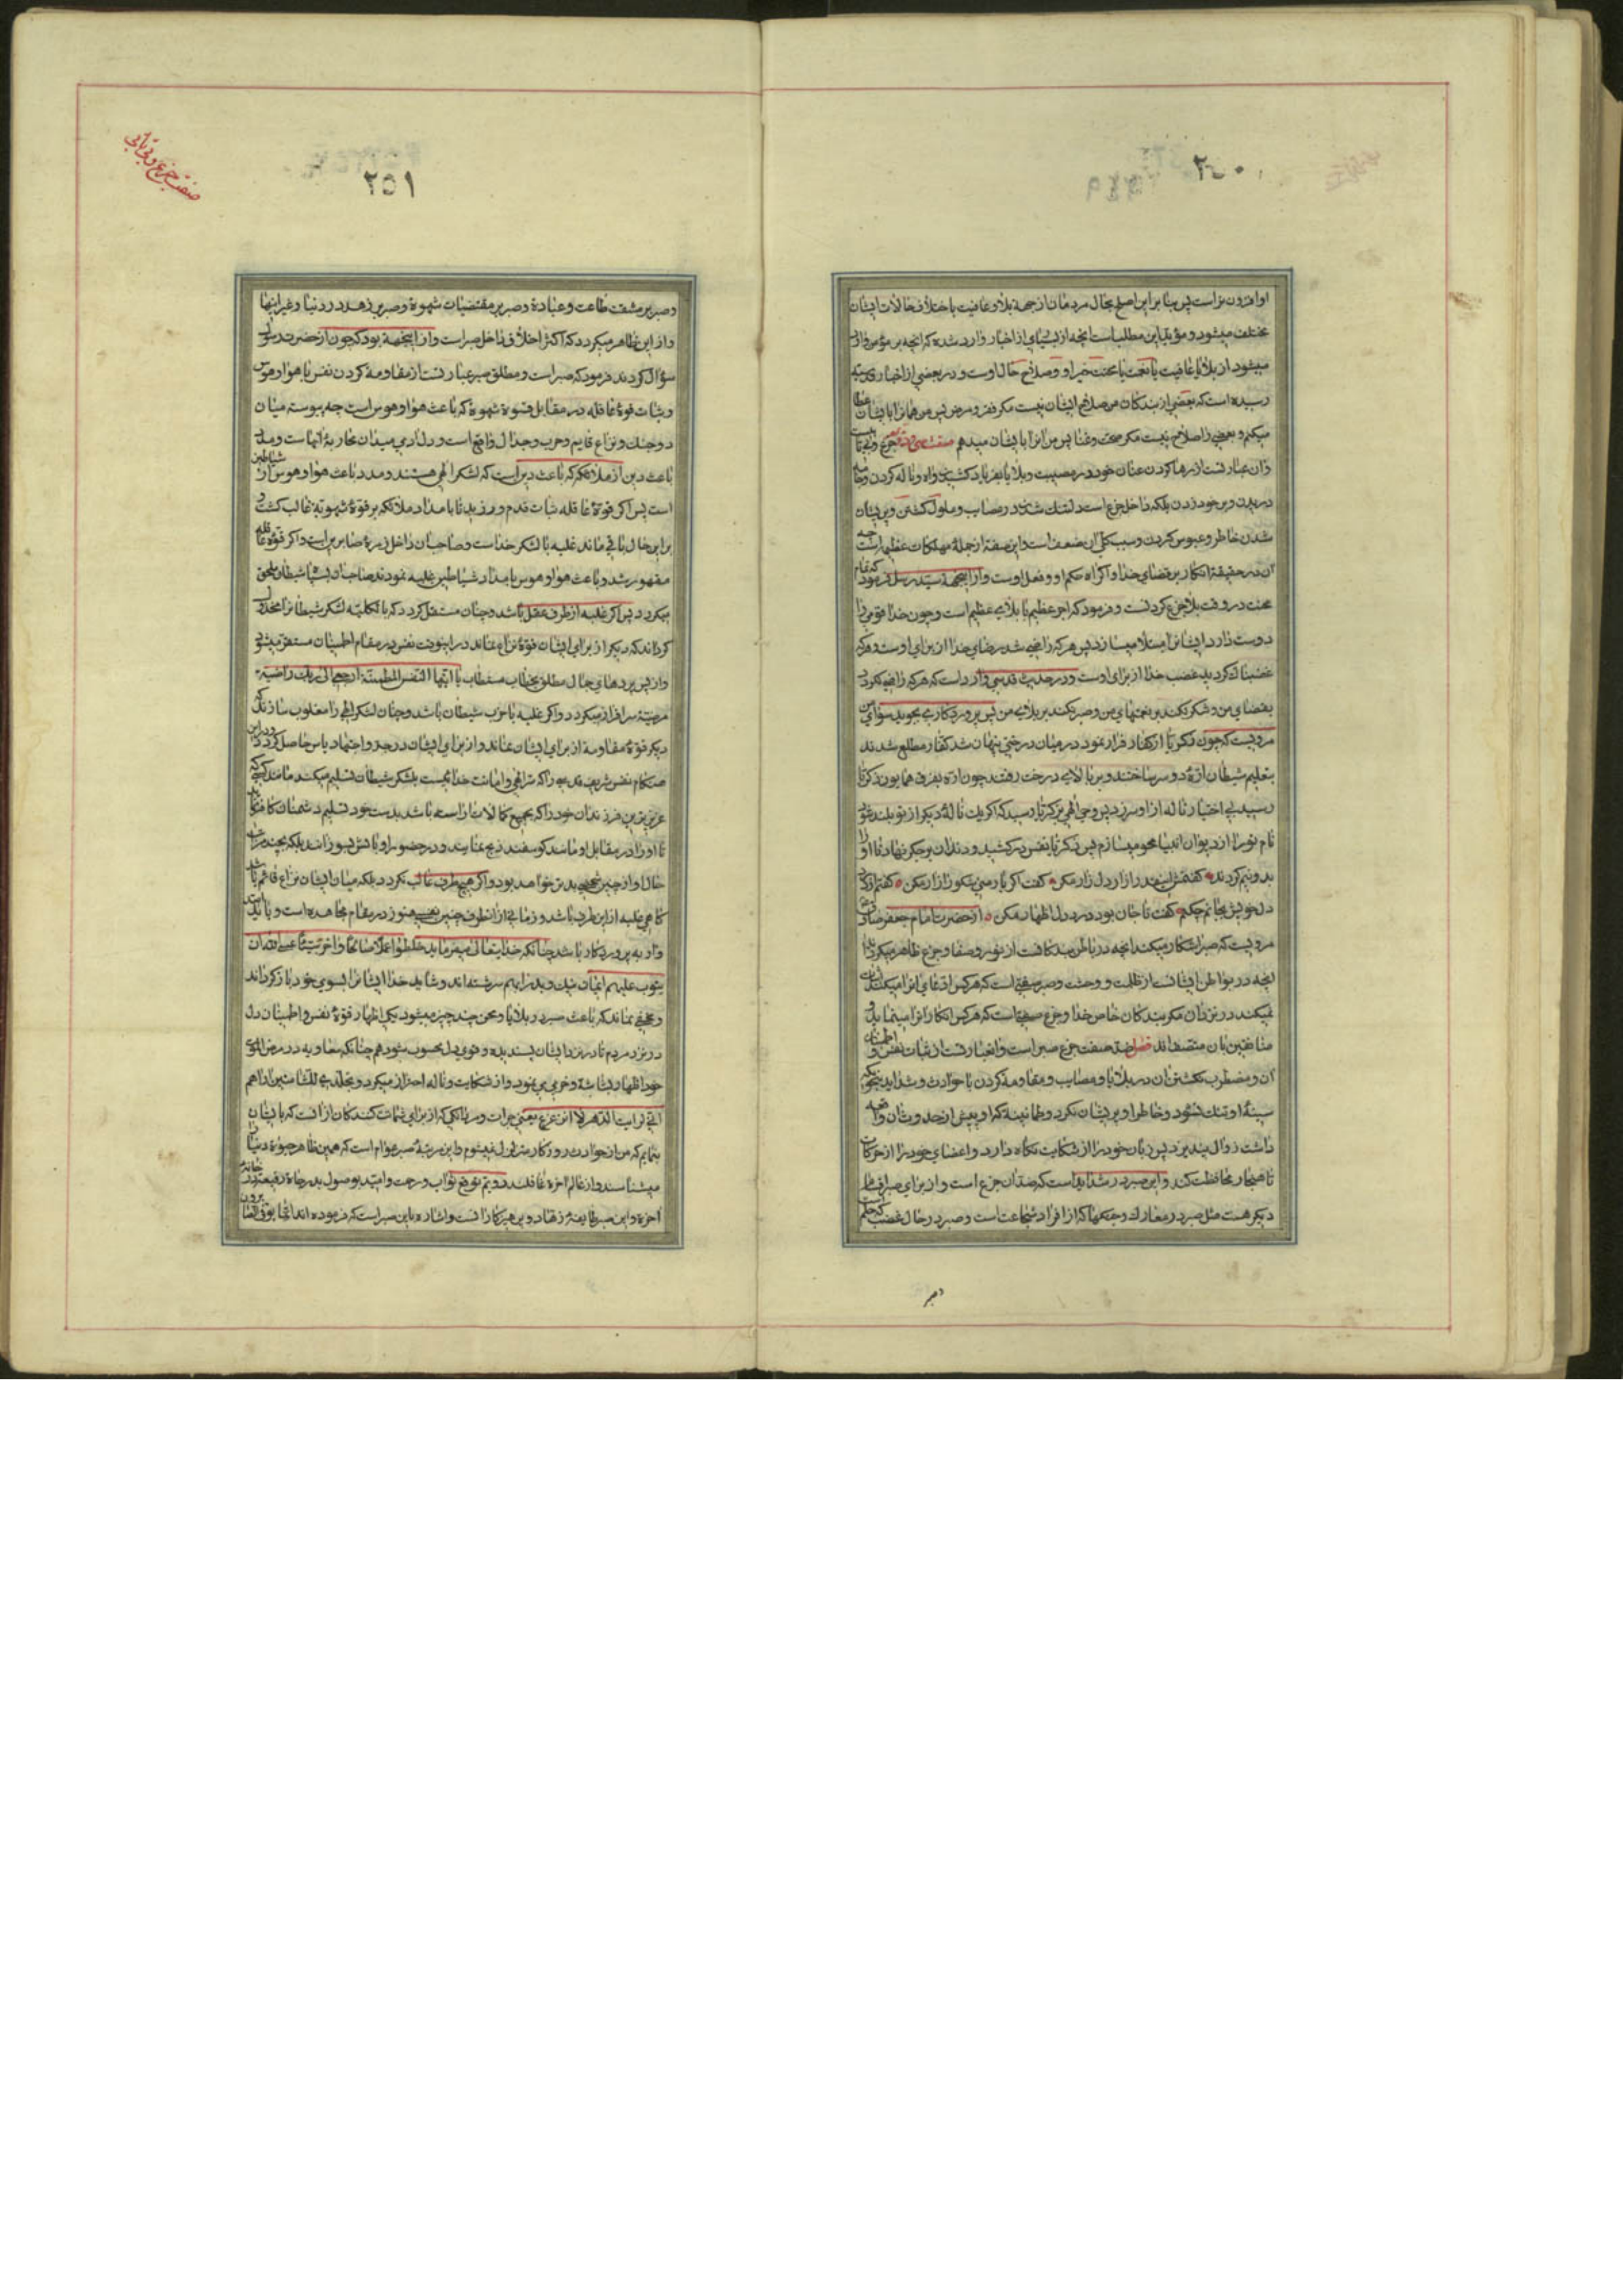 ٢٥٠
او افزون تر است پس بنا بر این اصلح بحال مردمان از جهة بلا و عافیت باختلاف حالات ایشان
مختلف میشود و مؤید این مطلب است انچه از بسیاری از اخبار وارد شده که انچه بر مؤمن وارد
میشود از بلا یا عافیت یا نعمت یا محنت خیر او و صلاح حال اوست و در بعضی از اخبار قدسیه
رسیده است که بعضی از بندکان من صلاح ایشان نیست مکر فقر و مرض پس من همانرا بایشان عطا
میکنم و بعضی را صلاح نیست مکر صحت و غنا پس من انرا بایشان میدهم صفت جزع و بیتابیست
و ان عبارتست از رها کردن عنان خود در مصیبت و بلا یا بفریاد کشیدن و اه و ناله کردن و جامه
دریدن و بر خود زدن بلکه داخل جزع است دلتنک شدن در مصایب و ملول کشتن و پریشان
شدن خاطر و عبوس کردن و سبب کلی ان ضعف نفس است و این صفة از جملۀ مهلکات عظیم است چه
ان در حقیقة انکار بر قضای خدا و اکراه حکم او و فعل اوست و از اینجهة سید رسل فرمود که تمام
محنت در وقت بلا جزع کردنست و فرمود که اجر عظیم با بلای عظیم است و چون خدا قومی را
دوست دارد ایشانرا مبتلا میسازد پس هر که راضی شد رضای خدا از برای اوست و هر که
غضبناک کردید غضب خدا از برای اوست و در حدیث قدسی وارد است که هر که راضی نکردد
بقضای من و شکر نکند بر نعمتهای من و صبر نکند بر بلای من پس پروردکاری بجوید سوای من
مرویست که چون زکریا از کفار فرار نمود در میان درختی پنهان شد کفار مطلع شدند
بتعلیم شیطان ارۀ دو سر ساختند و بر بالای درخت رفتند چون اره بفرق همایون زکریا
رسید بی اختیار ناله از او سر زد پس وحی الهی بزکریا رسید که اکر یک نالۀ دیکر از تو بلند شود
نام تو را از دیوان انبیا محو میسازم پس زکریا نفس درکشید و دندان بر جکر نهاد تا او را
بدو نیم کردند کفتمش از دل زار مکن کفت اکر یار منی شکوز ازار مکن کفتم از درد
دل خویش بجانم چکنم کفت تا جان بود درد دل اظهار مکن از حضرت امام جعفر صادق
مرویست که صبر اشکار میکند انچه در باطن بندکانست از نور و صفا و جزع ظاهر میکرداند
انچه در بواطن ایشانست از ظلمت و وحشت و صبر صفتی است که هر کس ادعای انرا میکند
نمیکند در نزد ان مکر بندکان خاص خدا و جزع صفتی است که هر کس انکار انرا مینماید و
منافقین بان متصف اند فصل ضد صفت جزع صبر است و ان عبارتست از ثبات نفس و اطمینان
ان و مضطرب نکشتن ان در بلایا و مصایب و مقاومة کردن با حوادث و شداید بنحوی که
سینۀ او تنک نشود و خاطر او پریشان نکردد و طمانینۀ که او پیش از حدوث ان واقعه
داشت زوال نپذیرد پس زبان خود را از شکایت نکاه دارد و اعضای خود را از حرکات
ناهنجار محافظت کند و این صبر در شداید است که ضد ان جزع است و از برای صبر اقسام
دیکر هست مثل صبر در معارک و جنکها که از افراد شجاعت است و صبر در حال غضب که حلم است
و صبر
صفت جزع و بی تابی
٢٥١
و صبر بر مشقت طاعت و عبادة و صبر بر مقتضیات شهوة و صبر بر زهد در دنیا و غیر اینها
و از این ظاهر میکردد که اکثر اخلاق داخل صبر است و از اینجهة بود که چون از حضرت رسول
سؤال کردند فرمود که صبر است و مطلق صبر عبارتست از مقاومة کردن نفس با هوا و هوس
و ثبات قوۀ عاقله در مقابل قوۀ شهویه که باعث هوا و هوس است چه پیوسته میان
دو جنک و نزاع قایم و حرب و جدال واقع است و دل ادمی میدان محاربۀ انهاست و مدد
باعث دین از ملائکه که باعث دین است که لشکر الهی هستند و مدد باعث هوا و هوس از شیاطین
است پس اکر قوۀ عاقله ثبات قدم ورزید تا بامداد ملائکه بر قوۀ شهویه غالب کشت و
بر این حال باقی ماند غلبه با لشکر خداست و صاحب ان داخل زمرۀ صابرین است و اکر قوۀ عاقله
مقهور شد و باعث هوا و هوس بامداد شیاطین غلبه نمودند صاحب ان بسپاه شیطان ملحق
میکردد پس اکر غلبه از طرف عقل باشد و چنان مستقل کردد که بالکلیه لشکر شیطانرا مخذول
کرداند که دیکر از برای ایشان قوۀ نزاع نماند در اینوقت نفس در مقام اطمینان مستقر میشود
و از پس پردهای جال مطلق بخطاب مستطاب یا ایتها النفس المطمئنة ارجعی الی ربک راضیة
مرضیة سرافراز میکردد و اکر غلبه با حزب شیطان باشد و چنان لشکر الهی را مغلوب سازند که
دیکر قوۀ مقاومة از برای ایشان نماند و از برای ایشان در جد و اجتهاد یاس حاصل کردد در این
هنکام نفس شریف قدسیه را که سر الهی و امانت خدائیست بلشکر شیطان تسلیم میکند مانند کسی که
عزیزترین فرزندان خود را که بجمیع کمالات اراسته باشد بدست خود تسلیم دشمنان کافر نماید
تا او را در مقابل او مانند کوسفند ذبح نمایند و در حضور او باتش بسوزانند بلکه بچند مرتبه
حال او از چنین شخصی بدتر خواهد بود و اکر هیچ طرف غالب نکردد بلکه میان ایشان نزاع قائم باشد
کاهی غلبه از این طرف باشد و زمانی از انطرف چنین نفسی هنوز در مقام مجاهده است و باید
وارد به پروردکار باشد چنانکه خدایتعالی میفرماید خلطوا عملا صالحا و اخر سیئا عسی الله ان
یتوب علیهم ایشان نیک و بد را بهم سرشته اند و شاید خدا ایشانرا بسوی خود باز کرداند
و مخفی نماند که باعث صبر در بلایا و محن چند چیز میشود یکی اظهار قوۀ نفس و اطمینان دل
در نزد مردم تا در نزد ایشان پسندیده و قوی دل محسوب شود هم چنانکه معاویه در مرض الموت
خود اظهار بشاشة و خرمی می نمود و از شکایت و ناله احتراز میکرد و تجلدی للشامتین اراهم
انی لریب الدهر لا اتزعزع یعنی جرات و مردانکی که از برای شماتت کنندکان از انست که بایشان
بنمایم که من از حوادث روزکار متزلزل نمیشوم و این مرتبۀ صبر عوام است که همین ظاهر حیوة دنیا را
میشناسند و از عالم اخرة غافلند و دویم توقع ثواب و رحمت و امید بوصول بدرجات رفیعه در خانۀ
اخرة و این صبر طایفۀ زهاد و پرهیزکارانست و اشاره باین صبر است که فرموده اند انما یوفی الصابرون